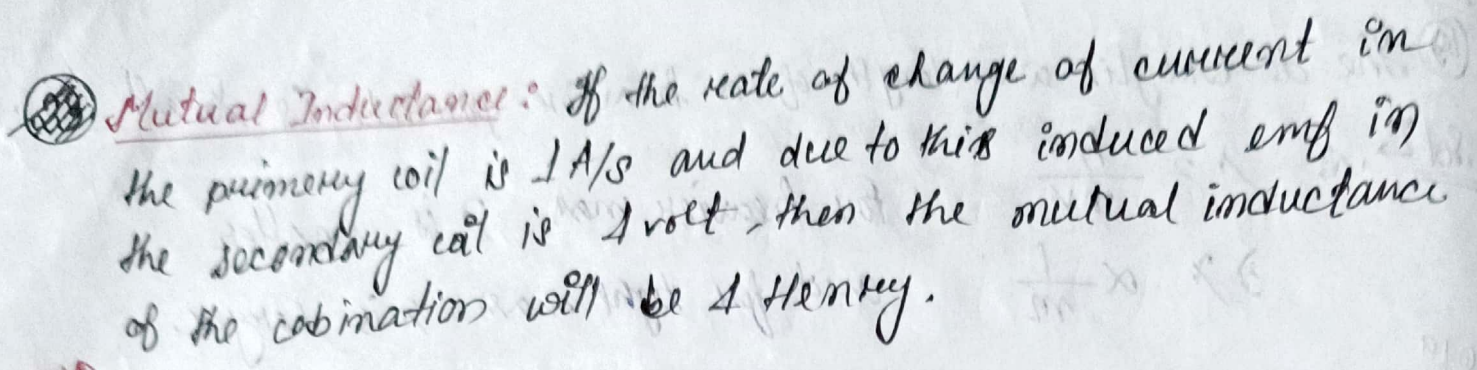 Mutual Inductance: If the rate of change of current in
the primery coil is 1 A/s and due to this induced emf in
the secondary coil is 1 volt, then the mutual inductance
of the cobination will be 1 Henry.